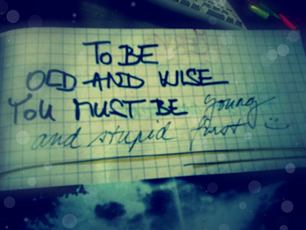 TO BE
OLD AND WISE
YOU MUST BE young
and stupid first :)